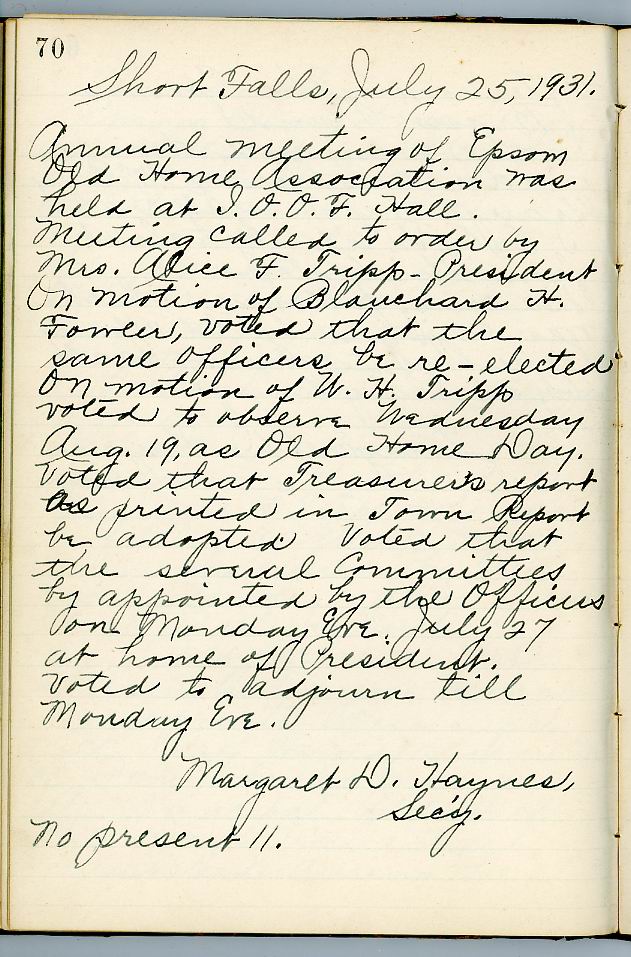 70
Short Falls, July 25, 1931.
Annual meeting of Epsom
Old Home Association was
held at I. O. O. F. Hall.
Meeting called to order by
Mrs. Alice F. Tripp - President
On motion of Blanchard H.
Fowler, voted that the
same officers be re-elected
On motion of W. H. Tripp
voted to observe Wednesday
Aug. 19, as Old Home Day.
Voted that Treasurer's report
as printed in Town Report
be adopted. Voted that
the several Committees
by appointed by the Officers
on Monday Eve. July 27
at home of President.
Voted to adjourn till
Monday Eve.
Margaret D. Haynes,
Sec'y.
No present 11.